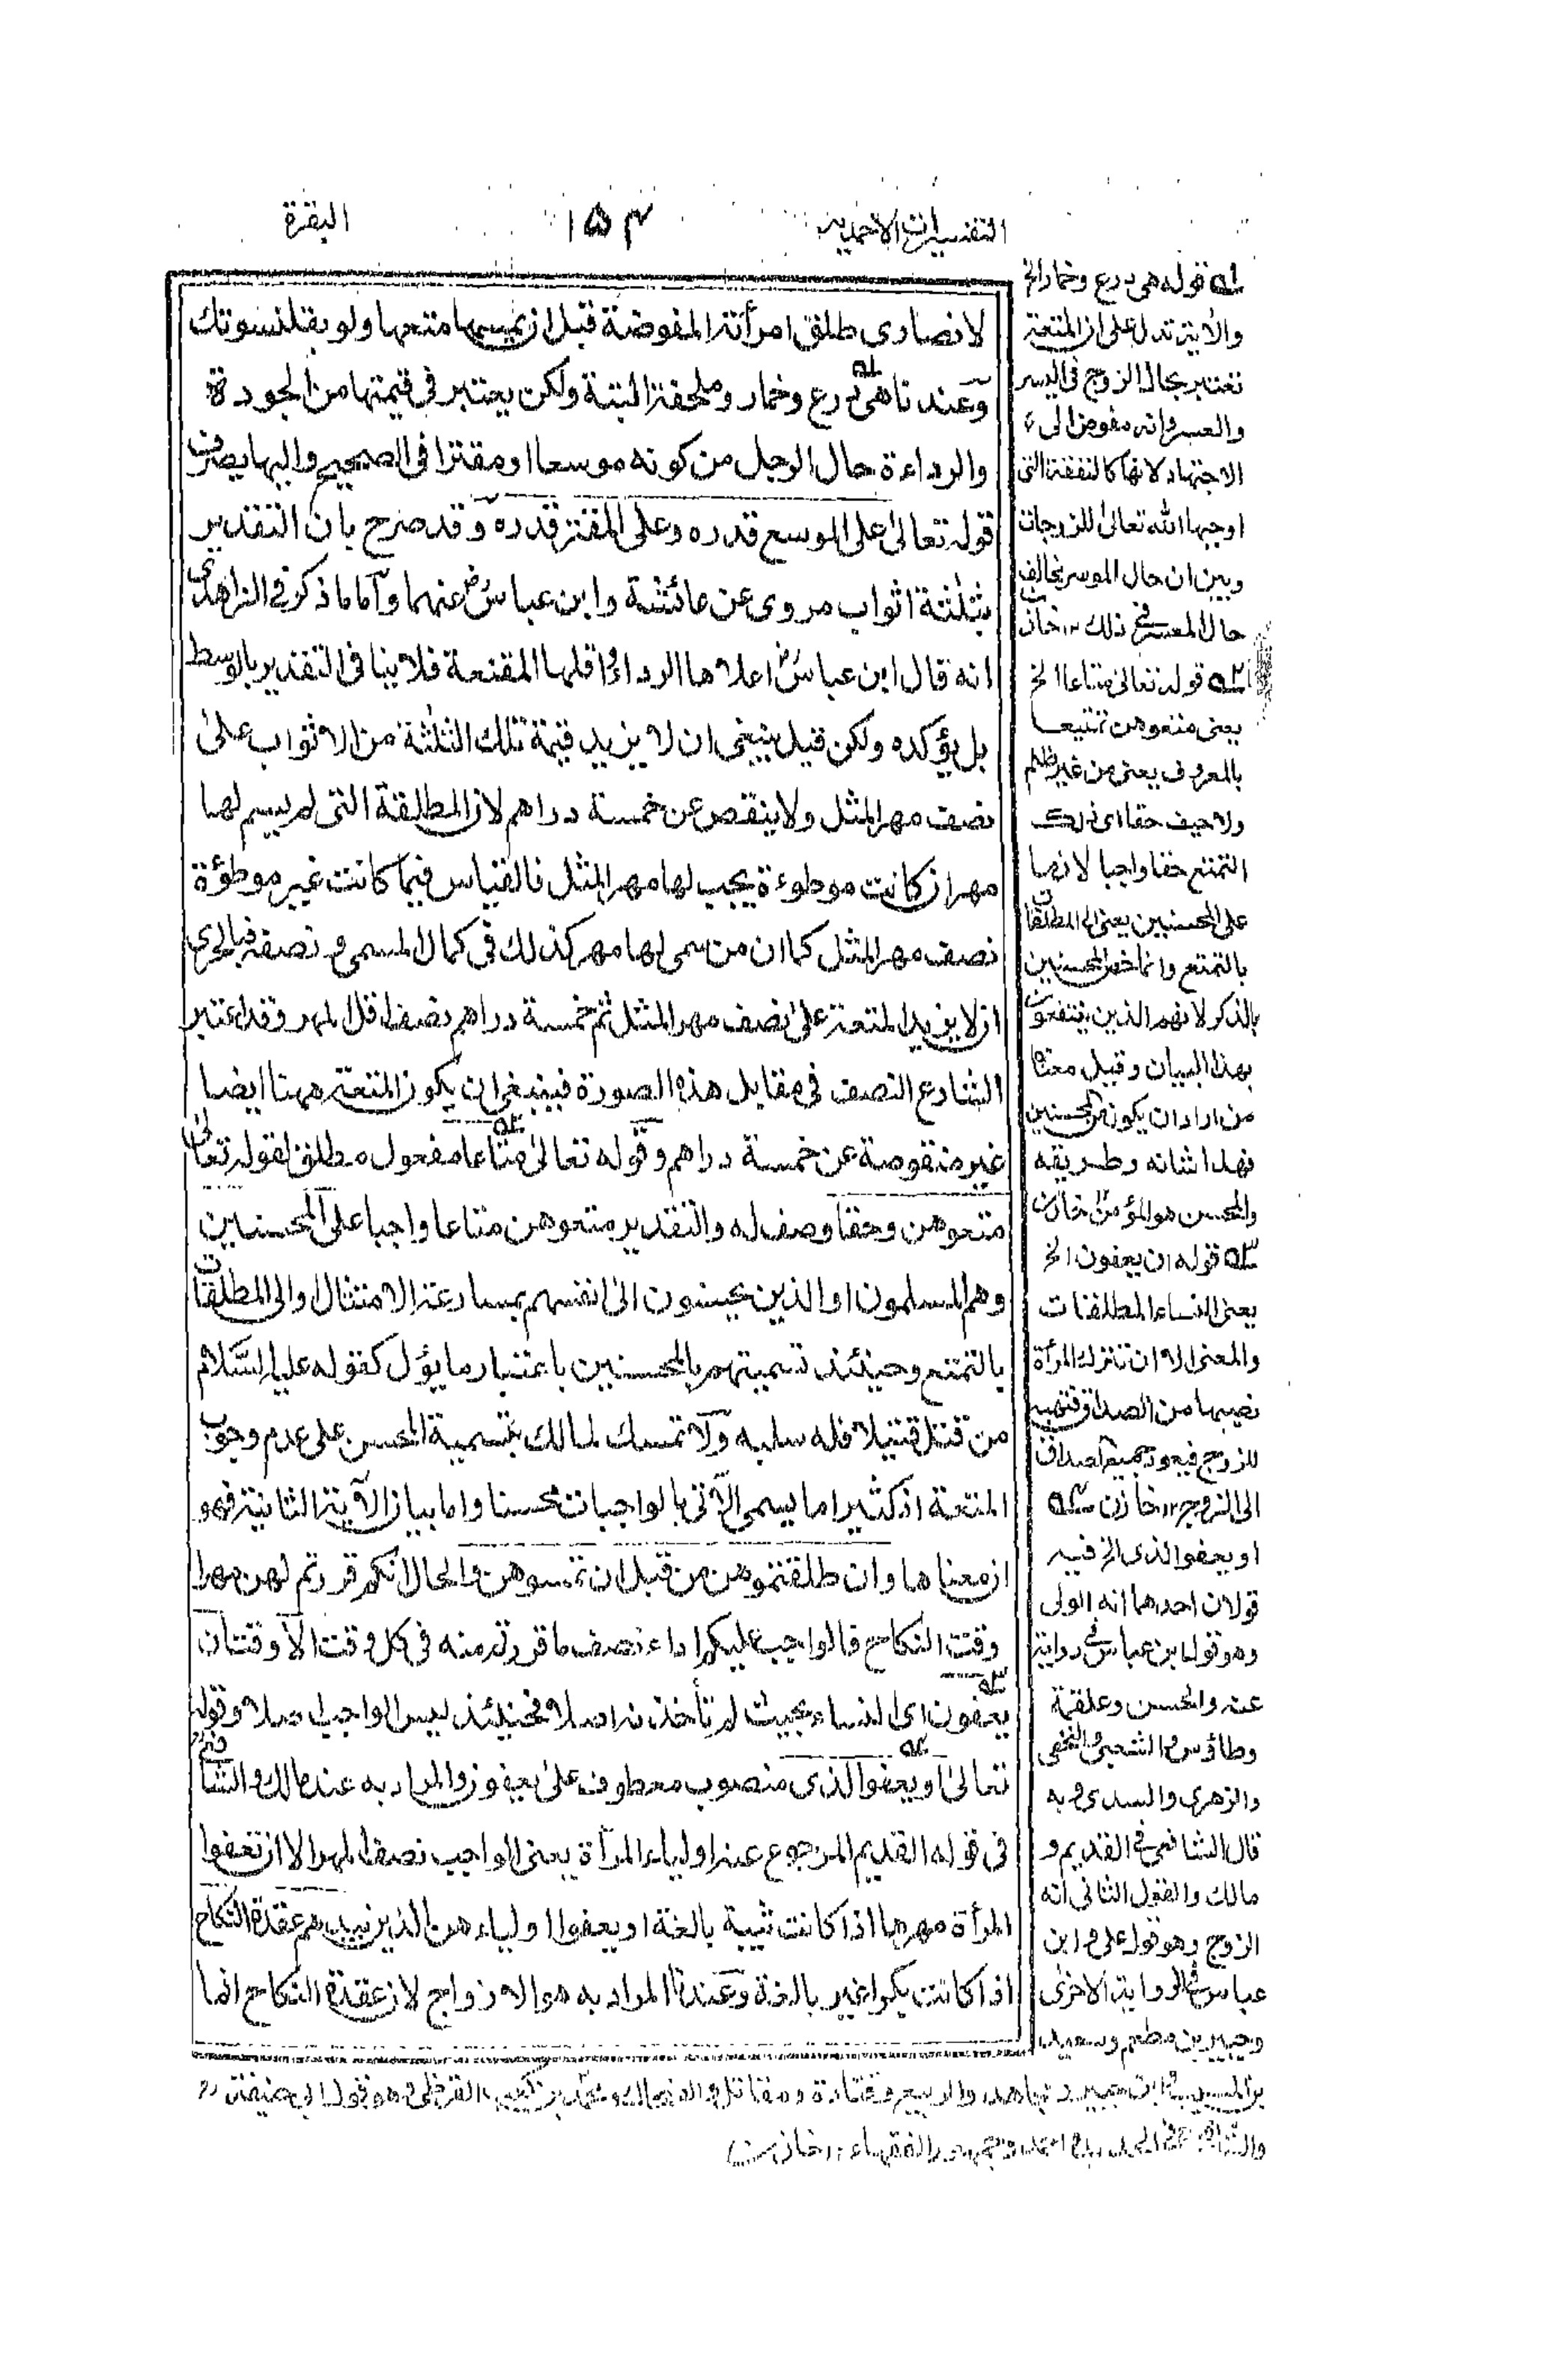 التفسيرات الاحمديه
۱۵۴
البقرة
لانصاری طلق امرأته المفوضة قبل ان یمسها متعها ولو بقلنسوتك
وعندنا هی درع وخمار وملحفة البتة ولكن یعتبر فی قیمتها من الجودة
والرداءة حال الرجل من كونه موسعا او مقترا فی الصحیح والیها یصرف
قوله تعالیٰ علی الموسع قدره وعلی المقتر قدره وقد صرح بان التقدیر
بثلٰثة اثواب مروی عن عائشة وابن عباسؓ عنهما واما ما ذكر فی الزاهدی
انه قال ابن عباسؓ اعلاها الرداء واقلها المقنعة فلا ینافی التقدیر بالوسط
بل یؤكده ولكن قیل ینبغی ان لا یزید قیمة تلك الثلٰثة من الاثواب علیٰ
نصف مهر المثل ولا ینقص عن خمسة دراهم لان المطلقة التی لم یسم لها
مهر ان كانت موطوءة یجب لها مهر المثل فالقیاس فیما كانت غیر موطؤة
نصف مهر المثل كما ان من سمی لها مهر كذلك فی كمال المسمی ونصفه فبالحری
ان لا یزید المتعة علیٰ نصف مهر المثل ثم خمسة دراهم نصف اقل المهر وقد اعتبر
الشارع النصف فی مقابل هذه الصورة فینبغی ان یكون المتعة ههنا ایضا
غیر منقوصة عن خمسة دراهم وقوله تعالیٰ متاعا مفعول مطلق لقوله تعالیٰ
متعوهن وحقا وصف له والتقدیر متعوهن متاعا واجبا علی المحسنین
وهم المسلمون او الذین یحسنون الیٰ انفسهم بمسارعة الامتثال او الی المطلقات
بالتمتع وحینئذ تسمیتهم بالمحسنین باعتبار ما یؤل كقوله علیه السَّلام
من قتل قتیلا فله سلبه ولا تمسك لمالك بتسمیة المحسن علی عدم وجوب
المتعة اذ كثیرا ما یسمی الآتی بالواجبات محسنا واما بیان الآیة الثانیة فهو
ان معناها وان طلقتموهن من قبل ان تمسوهن والحال انكم قررتم لهن مهرا
وقت النكاح فالواجب علیكم اداء نصف ما قررتم منه فی كل وقت الا وقت ان
یعفون ای النساء بحیث لم تأخذنه اصلا فحینئذ لیس الواجب اصلا وقوله
تعالیٰ او یعفو الذی منصوب معطوف علیٰ یعفون والمراد به عند مالك والشافعیؒ
فی قوله القدیم المرجوع عنه اولیاء المرأة یعنی الواجب نصف المهر الا ان تعفوا
المرأة مهرها اذا كانت ثیبة بالغة او یعفوا اولیاءهن الذین بیدهم عقدة النكاح
اذا كانت بكرا غیر بالغة وعندنا المراد به هو الازواج لان عقدة النكاح انما
۱؎ قوله هی درع وخمار الخ
والآیة تدل علی ان المتعة
تعتبر بحال الزوج فی الیسر
والعسر وانه مفوض الی
الاجتهاد لانها كالنفقة التی
اوجبها الله تعالیٰ للزوجات
وبین ان حال الموسر یخالف
حال المعسر فی ذلك ۱۲ خازن
۲؎ قوله تعالیٰ متاعا الخ
یعنی متعوهن تمتیعا
بالمعروف یعنی من غیر ظلم
ولا حیف حقا ای ذلك
التمتع حقا واجبا لازما
علی المحسنین یعنی الی المطلقات
بالتمتع وانما خص المحسنین
بالذكر لانهم الذین ینتفعون
بهذا البیان وقیل معناه
من اراد ان یكون من المحسنین
فهذا شانه وطریقه
والمحسن هو المؤمن ۱۲ خازن
۳؎ قوله ان یعفون الخ
یعنی النساء المطلقات
والمعنی الا ان تترك المرأة
نصیبها من الصداق فتهبه
للزوج فیعود جمیع الصداق
الی الزوج ۱۲ خازن ۴؎
او یعفو الذی الخ فیه
قولان احدهما انه الولی
وهو قول ابن عباس فی روایة
عنه والحسن وعلقمة
وطاؤس والشعبی والنخعی
والزهری والسدی وبه
قال الشافعی فی القدیم و
مالك والقول الثانی انه
الزوج وهو قول علی وابن
عباس فی الروایة الاخریٰ
وجبیر بن مطعم وسعید
بن المسیب وابن جبیر ومجاهد والربیع وقتادة ومقاتل والضحاك ومحمد بن كعب القرظی وهو قول ابی حنیفة
والشافعی فی الجدید واحمد وجمهور الفقهاء ۱۲ خازن